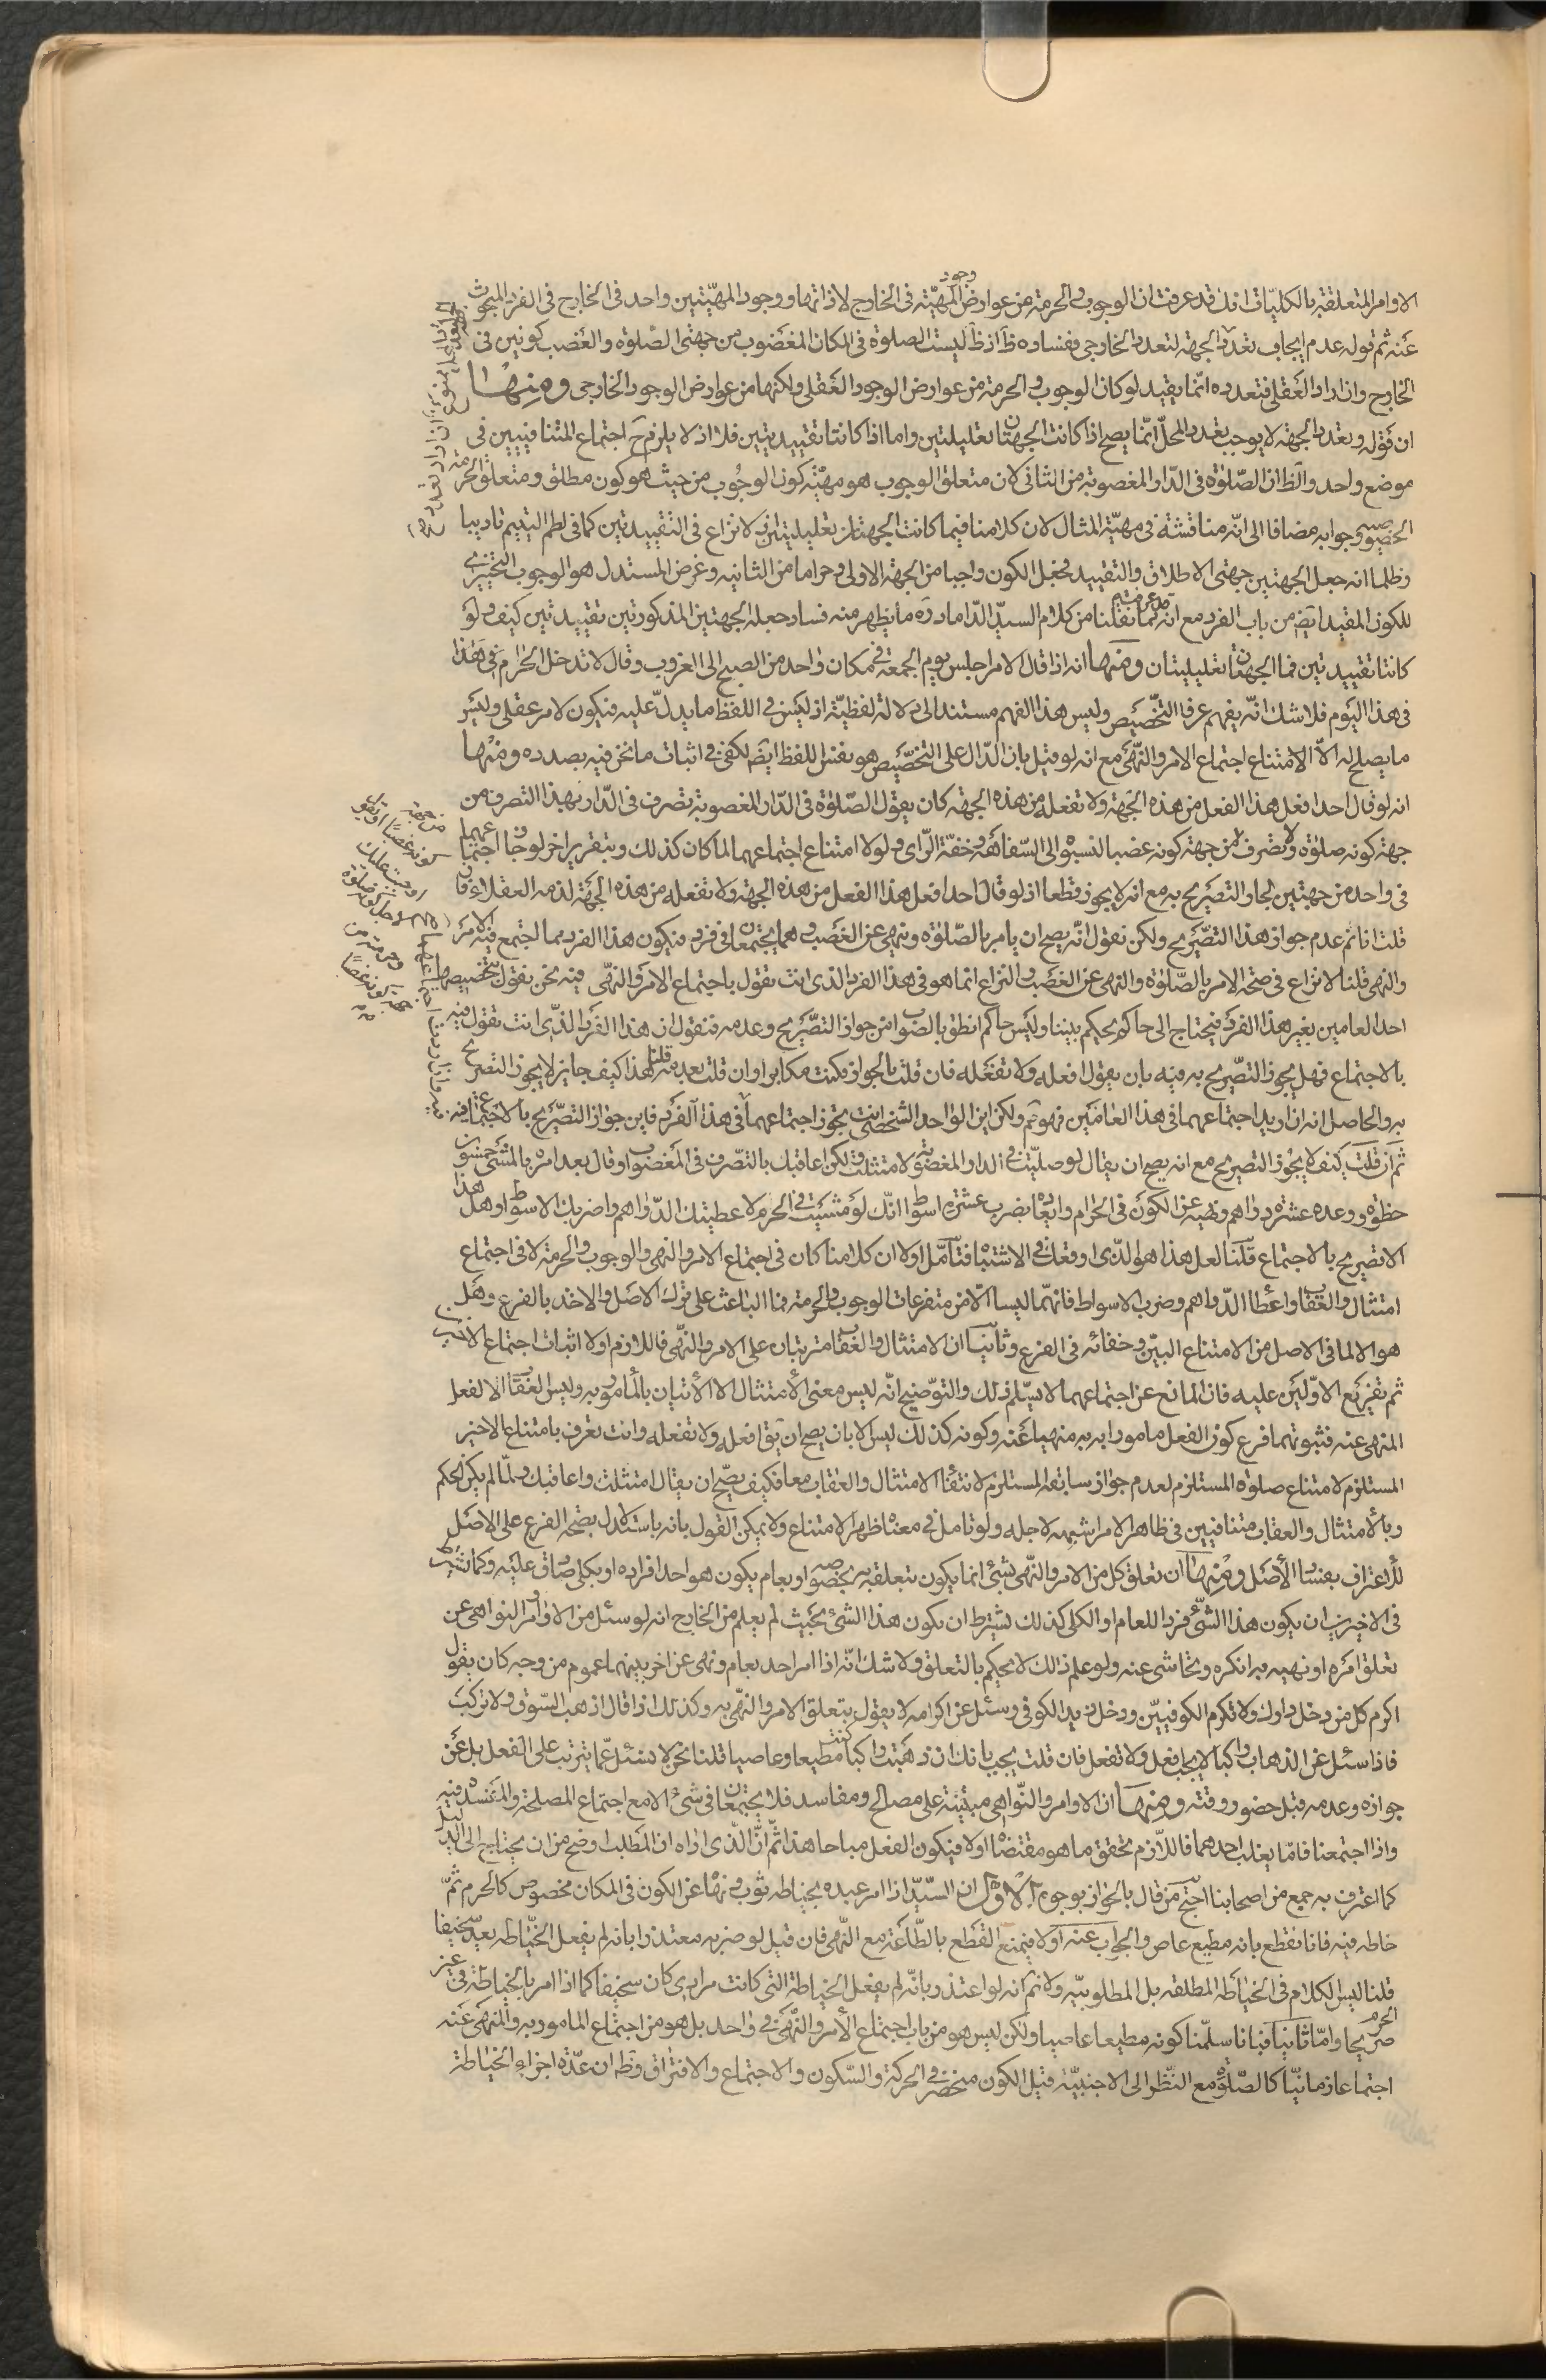 الاوامر المتعلقة بالكليّات انك قد عرفت ان الوجوب والحرمة من عوارض وجود المهيّة فى الخارج لا ذاتها و وجود المهيّتين واحد فى الخارج فى الفرد المبحوث
عنه ثم قوله عدم ايجاب تعدد الجهة لتعدد الخارجى ففساده ظ اذ ليست الصلوة فى المكان المغصوب من جهتى الصلوة والغصب كونين فى
الخارج وان اراد العقلى فتعدده انما يفيد لو كان الوجوب والحرمة من عوارض الوجود العقلى ولكنها من عوارض الوجود الخارجى ومنها
ان قوله وتعدد الجهة لا يوجب تعدد المحل انّما يصح اذا كانت الجهتان تعليليتين واما اذا كانتا تقييديتين فلا اذ لا يلزم ح اجتماع المتنافيين فى
موضع واحد والظ ان الصّلوة فى الدّار المغصوبة من الثانى لان متعلق الوجوب هو مهيّة كون الوجوب من حيث هو كون مطلق ومتعلق الحرمة
وجوابه مضافا الى انّه مناقشة فى مهيّة المثال لان كلامنا فيما كانت الجهتان تعليليتان اذ لا نزاع فى التقييديتين كما فى لطم اليتيم تاديبا
وظلما انه جعل الجهتين جهتى الاطلاق والتقييد فجعل الكون واجبا من الجهة الاولى وحراما من الثانيه وغرض المستدل هو الوجوب التخييرى
للكون المقيد ايضا من باب الفرد مع انه قد عرفت مما نقلنا من كلام السيد الدّاماد ره ما يظهر منه فساد جعله الجهتين المذكورتين تقييديتين كيف ولو
كانتا تقييديتين فما الجهتان تعليليتان ومنها انه اذا قال الامر اجلس يوم الجمعة فى مكان واحد من الصبح الى الغروب وقال لا تدخل الحرام فى هذا
فى هذا اليوم فلا شك انّه يفهم عرفا التخصيص وليس هذا الفهم مستندا الى دلالة لفظيّة اذ ليس فى اللفظ ما يدلّ عليه فيكون لامر عقلى وليس
ما يصلح له الّا الامتناع اجتماع الامر والنّهى مع انه لو قيل بان الدّال على التخصيص هو نفس اللفظ ايضا لكفى فى اثبات ما نحن فيه بصدده ومنها
انه لو قال احد افعل هذا الفعل من هذه الجهة ولا تفعله من هذه الجهة كان يقول الصّلوة فى الدّار المغصوبة تصرف فى الدّار بهذا التصرف من
جهة كونه صلوة ولا تصرف من جهة كونه غصبا لنسبوا الى السّفاهة وخفّة الرّاى ولولا امتناع اجتماعهما لما كان كذلك وبتقرير اخر لو جاز اجتماعهما
فى واحد من جهتين لجاز التصريح به مع انه لا يجوز قطعا اذ لو قال احد افعل هذا الفعل من هذه الجهة ولا تفعله من هذه الجهة لذمه العقلاء فان
قلت انا نم عدم جواز هذا التصريح ولكن نقول انّه يصح ان يامر بالصّلوة وينهى عن الغصب وهما يجتمعان فى فرد فيكون هذا الفرد مما اجتمع فيه الامر
والنهى قلنا لا نزاع فى صحة الامر بالصّلوة والنهى عن الغصب والنزاع انما هو فى هذا الفرد الذى انت تقول باجتماع الامر والنهى فيه نحن نقول بتخصيصهما
احد العامين بغير هذا الفرد فيحتاج الى حاكم يحكم بيننا وليس حاكم انطق بالصواب من جواز التصريح وعدمه فنقول ان هذا الفرد الذى انت تقول فيه
بالاجتماع فهل يجوز التصريح به فيه بان يقول افعله ولا تفعله فان قلت بالجواز فكنت مكابرا وان قلت بعدمه قلنا هذا كيف جايز لا يجوز التصريح
به والحاصل انه ان اريد اجتماعهما فى هذا العامين فهو نم ولكن اين الواحد الشخصى وانت تجوز اجتماعهما فى هذا الفرد فاين جواز التصريح بالاجتماع فيه
ثم ان قلت كيف لا يجوز التصريح مع انه يصح ان يقال لو صليت فى الدار المغصوبة لامتثلت ولكن اعاقبك بالتصرف فى المغصوب او قال بعد امره بالمشى خمسون
خطوة ووعده عشرة دراهم ونهيه عن الكون فى الحرام وايعاده بضرب عشرة اسواط انّك لو مشيت فى الحرم لاعطيتك الدّراهم واضربك الاسواط وهل هذا
الا تصريح بالاجتماع قلنا لعل هذا هو الذى اوقعك فى الاشتباه فتأمّل اولا ان كلامنا كان فى اجتماع الامر والنهى والوجوب والحرمة لا فى اجتماع
امتثال والعقاب واعطا الدّراهم وضرب الاسواط فانهّما ليسا الّا من متفرعات الوجوب والحرمة فما الباعث على ترك الاصل والاخذ بالفرع وهل
هو الا لما فى الاصل من الامتناع البيّن وخفائه فى الفرع وثانيا ان الامتثال والعقاب مترتبان على الامر والنّهى فاللازم اولا اثبات اجتماع الاخيرين
ثم تفريع الاوّلين عليه فان المانع عن اجتماعهما لا يسلّم ذلك والتوضيح انّه ليس معنى الأمتثال الا الأتيان بالمأمور به وليس العقاب الا لفعل
المنهى عنه فثبوتهما فرع كون الفعل مامورا به منهيا عنه وكونه كذلك ليس الا بان يصح ان يق افعله ولا تفعله وانت تعرف بامتناع الاخير
المستلزم لامتناع صلوة المستلزم لعدم جواز سابقه المستلزم لانتفاء الامتثال والعقاب معا فكيف يصّح ان يقال امتثلت واعاقبك ولمّا لم يكن الحكم
وبالأمتثال والعقاب متنافيين فى ظاهر الامر اشتبه لاجله ولو تامل فى معناه ظهر الامتناع ولا يمكن القول بانه باستدلال بصحة الفرع على الاصل
للأعتراف بفساد الأصل ومنها ان تعلق كل من الامر والنّهى بشئ انما يكون بتعلقه به بخصوصه او بعام يكون هو احد افراده او بكلى صادق عليه وكما يشترط
فى الاخيرين ان يكون هذا الشئ فردا للعام او الكلى كذلك يشترط ان يكون هذا الشئ بحيث لم يعلم من الخارج انه لو سئل من الاوامر النواهى عن
تعلق امره او نهيه به انكره وتحاشى عنه ولو علم ذلك لا يحكم بالتعلق ولا شك انّه اذا امر احد بعام ونهى عن اخر بينهما عموم من وجه كان يقول
اكرم كل من دخل دارك ولا تكرم الكوفيين ودخل زيد الكوفى وسئل عن اكرامه لا يقول بتعلق الامر والنّهى به وكذلك اذا قال اذهب السّوق ولا تركب
فاذا سئل عن الذهاب راكبا لا يجب افعل ولا تفعل فان قلت يجيب بانك ان ذهبت راكبا كنت مطيعا وعاصيا قلنا نحن لا نسئل عمّا يترتب على الفعل بل عن
جوازه وعدمه قبل حضور وقته ومنها ان الاوامر والنّواهى مبتنية على مصالح ومفاسد فلا يجتمعان فى شئ الا مع اجتماع المصلحة والمفسدة فيه
واذا اجتمعنا فامّا يغلب احدهما فاللّازم تحقق ما هو مقتضاه اولا فيكون الفعل مباحا هذا ثمّ انّ الذى اراه ان المطلب اوضح من ان يحتاج الى الدليل
كما اعترف به جمع من اصحابنا احتج من قال بالجواز بوجوه الاوّل ان السّيّد اذا امر عبده بخياطة ثوب ونهاه عن الكون فى المكان مخصوص كالحرم ثمّ
خاطه فيه فانا نقطع بانه مطيع عاص والجواب عنه اولا فبمنع القطع بالطّاعة مع النّهى فان قيل لو ضربه معتذرا بانه لم يفعل الخيّاطه يعدّ سخيفا
قلنا ليس الكلام فى الخياطة المطلقة بل المطلوبيّة ولا نم انه لو اعتذر بانّه لم يفعل الخياطة التى كانت مرادى كان سخيفا كما اذا امر بالخياطة فى غير الحرم
صريحا وامّا ثانيا فبانا سلّمنا كونه مطيعا عاصيا ولكن ليس هو من باب اجتماع الأمر والنّهى فى واحد بل هو من اجتماع المامور به والمنهى عنه
اجتماعا زمانيّا كالصّلوة مع النّظر الى الاجنبيّة قيل الكون منحصر فى الحركة والسّكون والاجتماع والافتراق وظ ان عدّة اجزاء الخياطة